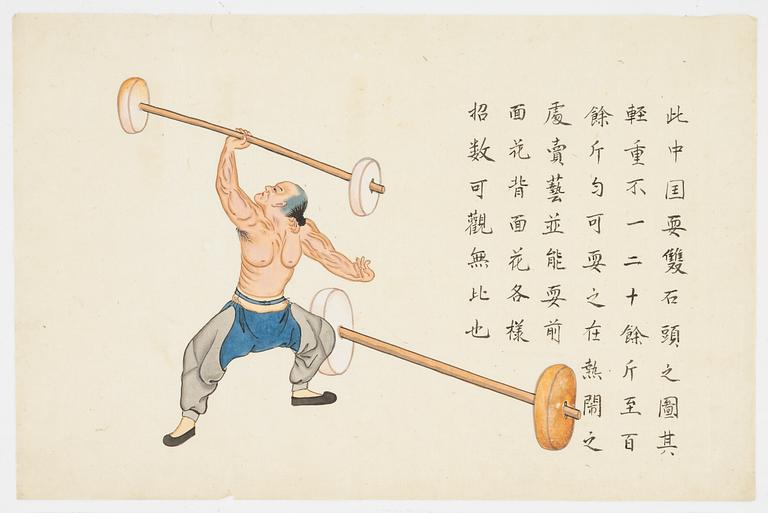 此中囯耍雙石頭之圖其
輕重不一二十餘斤至百
餘斤匀可耍之在熱鬧之
處賣藝並能耍前
面花背面花各樣
招数可觀無比也